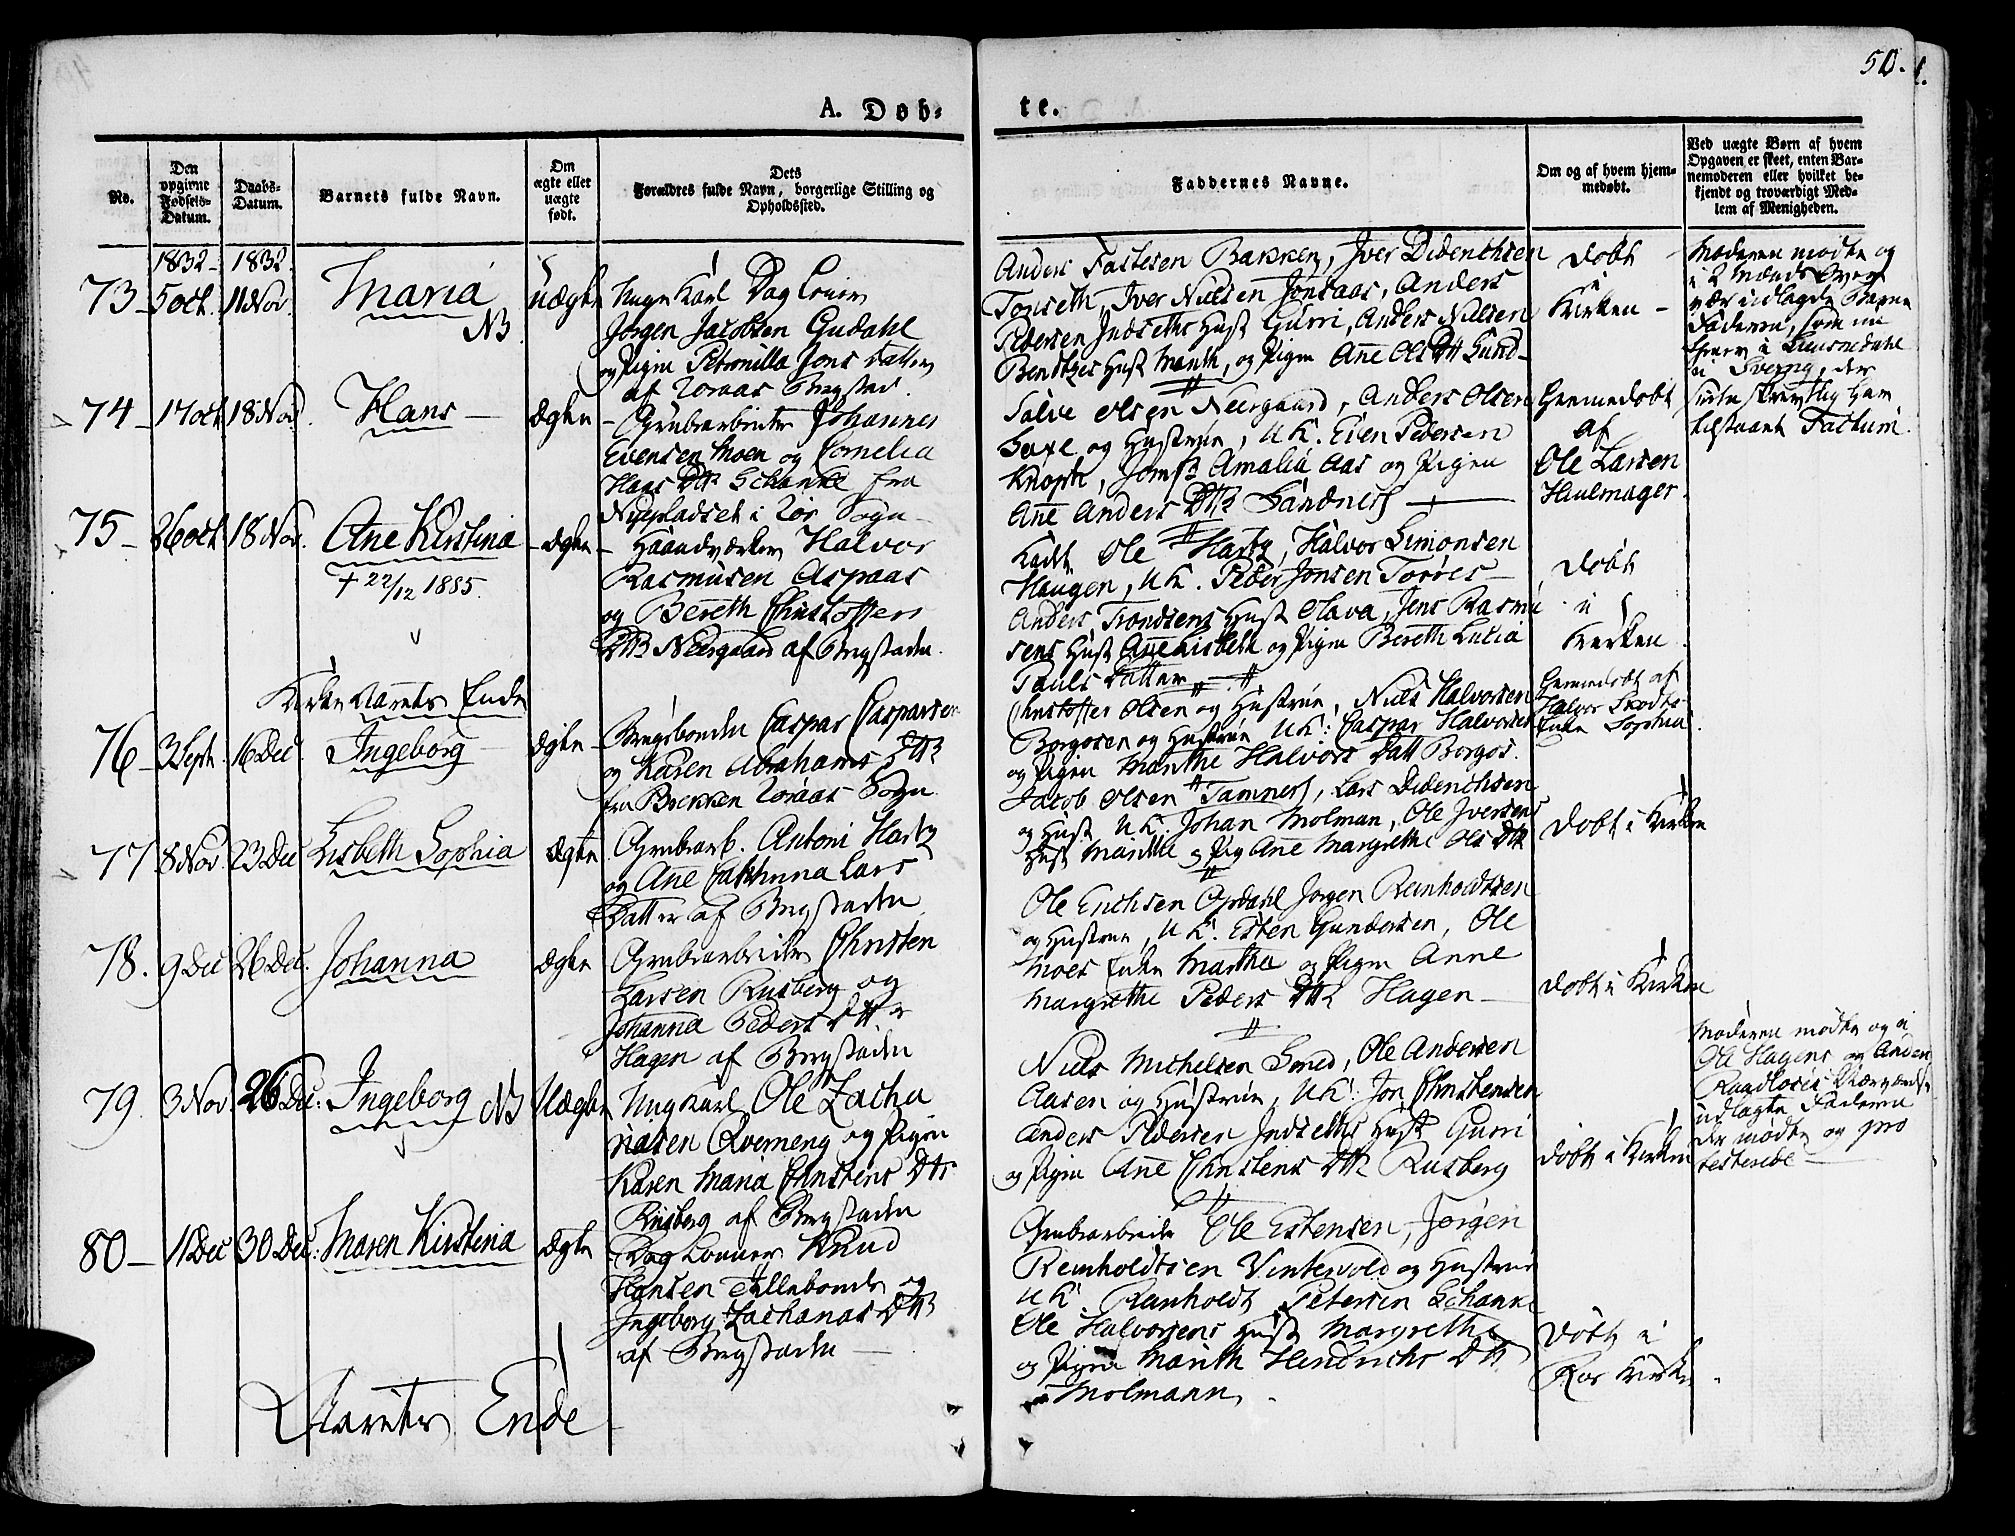 50.
A. Døb-
te.
No.
Den opgivne Fødsels-Datum.
Daabs-Datum.
Barnets fulde Navn.
Om ægte eller uægte født.
Dets Forældres fulde Navn, borgerlige Stilling og Opholdssted.
Faddernes Navne.
Om og af hvem hjemmedøbt.
Ved uægte Børn af hvem Opgaven er skeet, enten Barnemoderen eller hvilket bekjendt og troværdigt Medlem af Menigheden.
1832 1832
73 5 Oct. 11 Nov. Maria NB uægte
Ungekarl
Jørgen Jacobsen Gudahl
og Pigen Petronilla Jons Datter
af Røraas Bergstad.
Anders Fastesen Bakken, Iver Diderichsen
Tonseth, Iver Nielsen Jonsaas, Anders
Pedersen Indseths Hust Gurri, Anders Nielsen
Hust Marith, og Pigen Ane Ols Dtt Sund
Døbt
i
Kirken
Moderen mødte og
i 2 Mænds Over
vær udlagde Barne
Faderen, som nu
i
i Sverrig, der
skriftlig har
tilstaaet Factum.
74 17 Oct 18 Nov. Hans ægte
Grubearbeider Johannes
Evensen Moen og Cornelia
Hans Dtr Schanke fra
Nyepladset i Rør. Sogn
Salve Olsen Neergaard, Anders Olsen
Saxe og Hustrue, UK. Even Pedersen
Knoph, Jomfr Amalia Aas og Pigen
Ane Anders Dtr Sandnes
Hiemmedøbt
af
Ole Larsen
Hiulmager.
75 26 Oct 18 Nov. Ane Kirstina ægte
† 22/12 1885.
Haandværker Halvor
Rasmusen Aspaas
og Bereth Christoffers
Dtr Neergaard af Bergstaden.
Kadt. Ole Hartz, Halvor Simonsen
Haugen, UK. Peder Jonsen Torres
Anders Trondsens Hust Olava, Jens Rasmu
sens Hust Anne Lisbeth og Pigen Bereth Lucia
Pauls Datter
Døbt
i
Kirken
Kirke Aarets Ende
76 3 Sept. 16 Dec. Ingeborg ægte
Brugsbonden Caspar Caspersen
og Karen Abrahams Dtr
fra Brekken Røraas Sogn
Christoffer Olsen og Hustrue, Niels Halvorsen
Borgosen og Hustrue UK: Caspar Halvorsen
og Pigen Marithe Halvors Datt Borgos.
Hiemmedøbt af
Halvor Skotts
Enke Sophia.
77 8 Nov. 23 Dec Lisbeth Sophia ægte
Grubearb. Antoni Hartz
og Ane Cathrina Lars
Datter af Bergstaden
Jacob Olsen Tamnes, Lars Diderichsen
og Hust UK. Johan Molman, Ole Iversens
Hust Marithe og Pig Ane Margrethe Ols Dtr
Døbt i Kirken
78. 9 Dec 26 Dec. Johanna ægte
Grubearbeider Christen
Larsen Rusberg og
Johanna Peders Dtr
Hagen af Bergstaden
Ole Erichsen Opdahl Jørgen Reinholdtsen
og Hustrue, UK. Esten Gundersen, Ole
Moes Enke Marthe og Pigen Anne
Margrethe Peders Dtr Hagen
Døbt i Kirken
79. 3 Nov. 26 Dec. Ingeborg NB Uægte
Ungkarl Ole Zacha
riasen Qverneng og Pigen
Karen Maria Christens Dtr
Rusberg af Bergstaden
Niels Michelsen Smed, Ole Andersen
Aasen og Hustrue, UK: Jon Christensen
Anders Pedersen Indseths Hust Gurri
og Pigen Ane Christens Dtr Rusberg
Døbt i Kirken
Moderen mødte og i
Ole Hagens og Anders
Overværelse
udlagte Faderen
der mødte og pro
testerede
80 11 Dec 30 Dec. Maren Kirstina ægte
Dag Lønner Knud
Hansen Gillebonde og
Ingeborg Zacharias Dtr
af Bergstaden
Grubearbeider Ole Estensen, Jørgen
Reinholdtsen Vintervold og Hustrue
UK. Reinholdt Petersen Schanke
Ole Halvorsens Hust Margrethe
og Pigen Marith Hendrichs Dtr
Molmann.
Døbt i
Rør Kirke
Aarets Ende